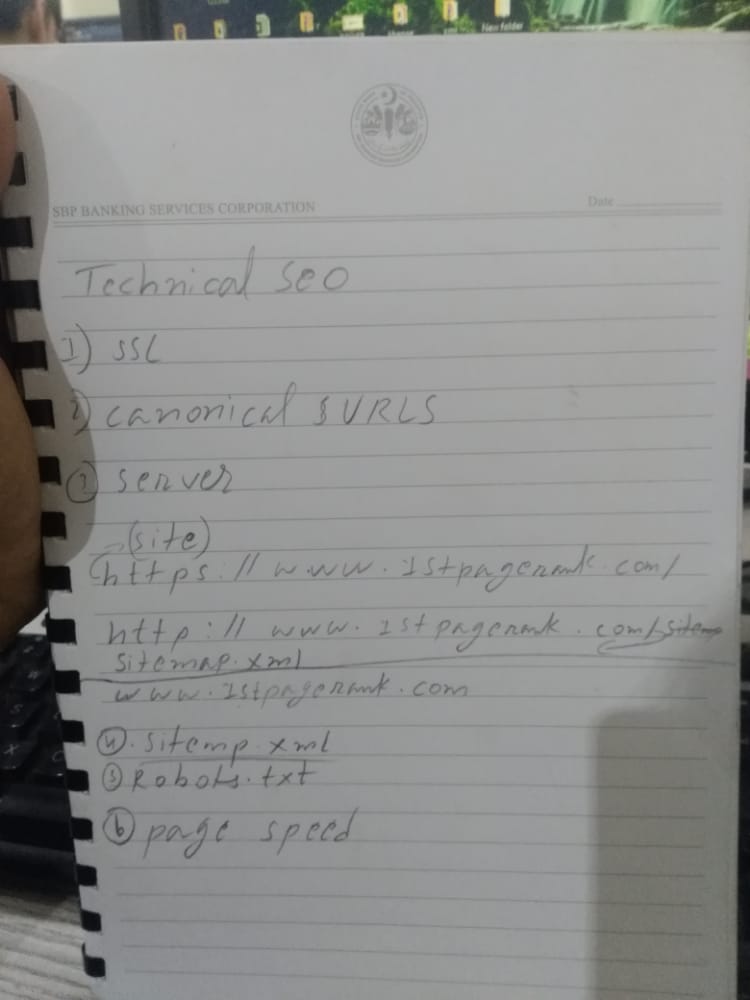 New folder
SBP BANKING SERVICES CORPORATION
Date
Technical SEO
1) SSL
2) canonical & URLS
3 server
(site)
https://www.1stpagerank.com/
http://www.1stpagerank.com/sitemp
sitemap.xml
www.1stpagerank.com
4. sitemp.xml
5 Robots.txt
6 page speed